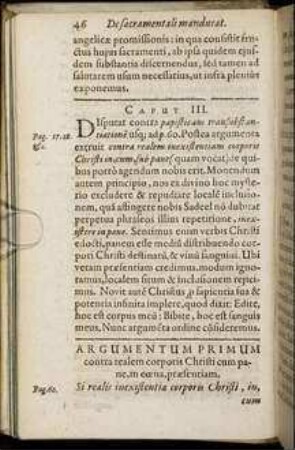 46 De sacramentali manducat.
angelicæ promissionis: in qua consistit fru-
ctus hujus sacramenti, ab ipsa quidem ejus-
dem substantia discernendus, sed tamen ad
salutarem usum necessarius, ut infra plenius
exponemus.
CAPUT III.
Pag. 17.18.
&c.
DIsputat contra papisticam transsubstan-
tiationē usq; ad p. 60. Postea argumenta
extruit contra realem inexistentiam corporis
Christi in, cum, sub pane (quam vocat) de qui-
bus porrò agendum nobis erit. Monendum
autem principio, nos ex divino hoc myste-
rio excludere & repudiare localē inclusio-
nem, quā affingere nobis Sadeel nō dubitat
perpetua phraseos illius repetitione, inexi-
stere in pane. Sentimus enim verbis Christi
edocti, panem esse mediū distribuendo cor-
pori Christi destinatū, & vinū sanguini. Ubi
veram præsentiam credimus, modum igno-
ramus, localem situm & inclusionem rejici-
mus. Novit autē Christus, p sapientia sua &
potentia infinita implere, quod dixit: Edite,
hoc est corpus meū: Bibite, hoc est sanguis
meus. Nunc argumēta ordine cōsideremus.
ARGUMENTUM PRIMUM
contra realem corporis Christi cum pa-
ne, in cœna, præsentiam.
Pag. 60.
Si realis inexistentia corporis Christi, in,
cum